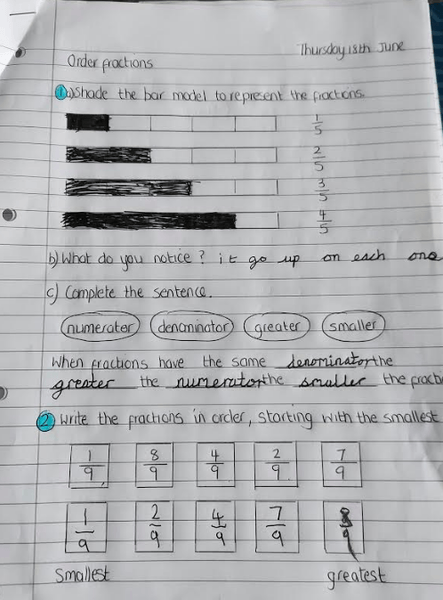 Thursday 18th June
Order fractions
1 a) Shade the bar model to represent the fractions.
1/5
2/5
3/5
4/5
b) What do you notice? it go up on each one
c) Complete the sentence.
numerater denominator greater smaller
When fractions have the same denominator the
greater the numerator the smaller the fracti
2 Write the fractions in order, starting with the smallest
1/9 8/9 4/9 2/9 7/9
1/9 2/9 4/9 7/9 8/9
Smallest greatest